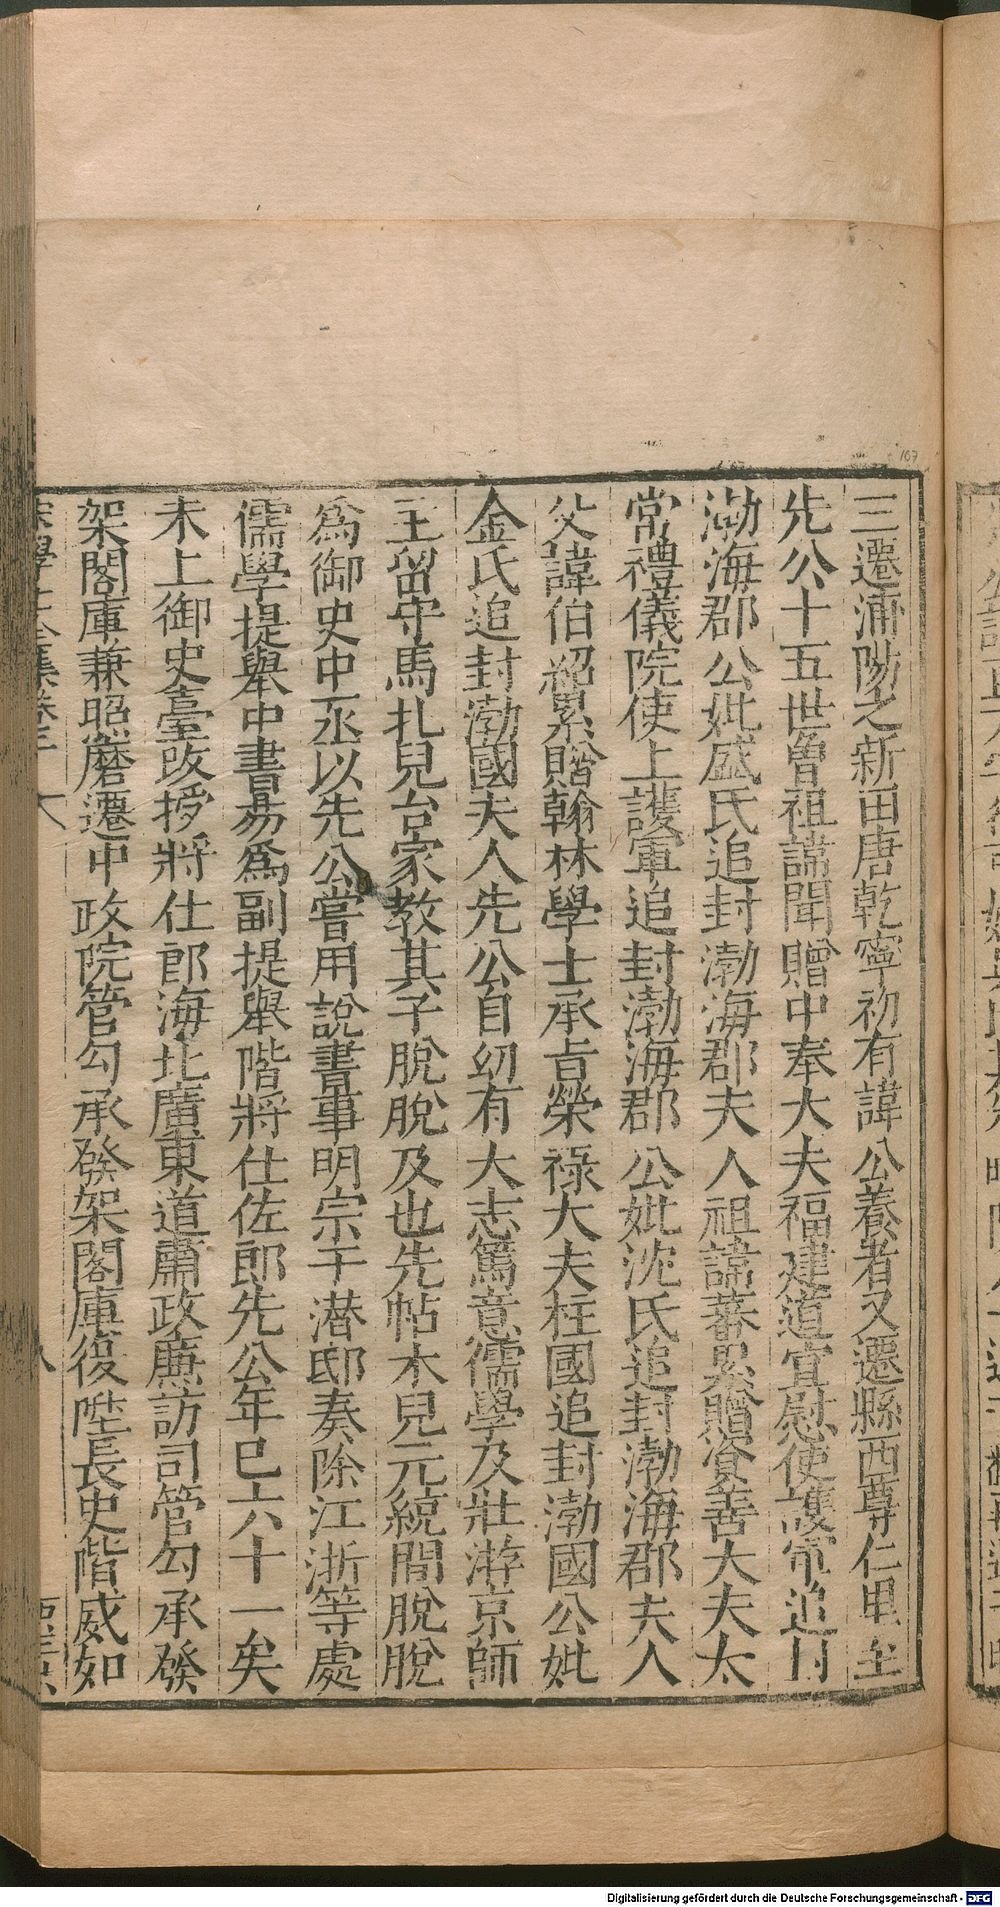 三遷浦陽之新田唐乾寧初有諱公養者又遷縣西尊仁里至
先公十五世曾祖諱聞贈中奉大夫福建道宣慰使護軍追封
渤海郡公妣盛氏追封渤海郡夫人祖諱蕃累贈資善大夫太
常禮儀院使上護軍追封渤海郡公妣沈氏追封渤海郡夫人
父諱伯紹累贈翰林學士承旨榮祿大夫柱國追封渤國公妣
金氏追封渤國夫人先公自幼有大志篤意儒學及壯游京師
王留守馬扎兒台家教其子脫脫及也先帖木兒元統間脫脫
爲御史中丞以先公嘗用說書事明宗于潛邸奏除江浙等處
儒學提舉中書易爲副提舉階將仕佐郎先公年巳六十一矣
未上御史臺改授將仕郎海北廣東道肅政廉訪司管勾承發
架閣庫兼照磨遷中政院管勾承發架閣庫復陞長史階威如
集卷三 八
107
Digitalisierung gefördert durch die Deutsche Forschungsgemeinschaft - DFG